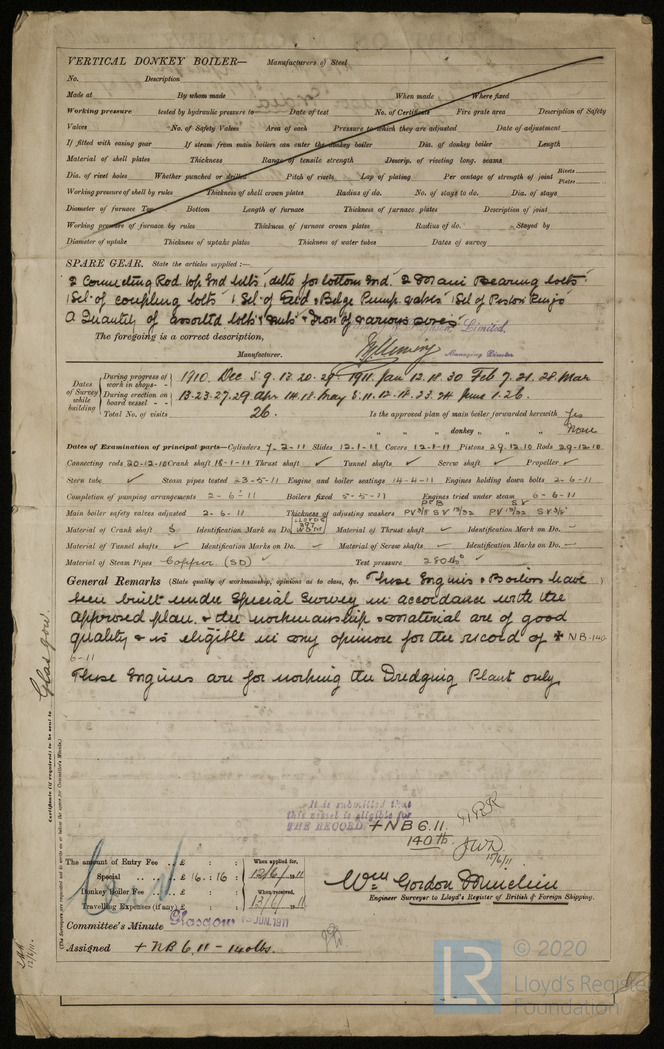 VERTICAL DONKEY BOILER— Manufacturers of Steel
No. Description
Made at By whom made When made Where fixed
Working pressure tested by hydraulic pressure to Date of test No. of Certificate Fire grate area Description of Safety
Valves No. of Safety Valves Area of each Pressure to which they are adjusted Date of adjustment
If fitted with easing gear If steam from main boilers can enter the donkey boiler Dia. of donkey boiler Length
Material of shell plates Thickness Range of tensile strength Descrip. of riveting long. seams
Dia. of rivet holes Whether punched or drilled Pitch of rivets Lap of plating Per centage of strength of joint Rivets Plates
Working pressure of shell by rules Thickness of shell crown plates Radius of do. No. of stays to do. Dia. of stays
Diameter of furnace Top Bottom Length of furnace Thickness of furnace plates Description of joint
Working pressure of furnace by rules Thickness of furnace crown plates Radius of do. Stayed by
Diameter of uptake Thickness of uptake plates Thickness of water tubes Dates of survey
SPARE GEAR. State the articles supplied:—
2 Connecting Rod top End bolts, ditto for bottom End. 2 Main Bearing bolts
1 Set of coupling bolts 1 Set of Feed & Bilge Pump Valves 1 Set of Piston Rings
A Quantity of assorted bolts & nuts & Iron of various sizes
Limited.
The foregoing is a correct description,
Manufacturer. Managing Director
Dates of Survey while building
During progress of work in shops - - 1910. Dec 5. 9. 13. 20. 29. 1911. Jan 12. 18. 30 Feb 7. 21. 28 Mar
During erection on board vessel - - 13. 23. 27. 29 Apr 14. 18 May 5. 11. 12. 18. 23. 24 June 1. 26.
Total No. of visits 26. Is the approved plan of main boiler forwarded herewith Yes
" " " donkey " " " None
Dates of Examination of principal parts—Cylinders 7-2-11 Slides 12-1-11 Covers 12-1-11 Pistons 29.12.10 Rods 29-12-10
Connecting rods 20-12-10 Crank shaft 18-1-11 Thrust shaft ✓ Tunnel shafts ✓ Screw shaft ✓ Propeller ✓
Stern tube ✓ Steam pipes tested 23-5-11 Engine and boiler seatings 14-4-11 Engines holding down bolts 2-6-11
Completion of pumping arrangements 2-6-11 Boilers fixed 5-5-11 Engines tried under steam 6-6-11
Main boiler safety valves adjusted 2-6-11 Thickness of adjusting washers
Material of Crank shaft S Identification Mark on Do. LLOYDS Material of Thrust shaft ✓ Identification Mark on Do. ✓
Material of Tunnel shafts ✓ Identification Marks on Do. ✓ Material of Screw shafts ✓ Identification Marks on Do. ✓
Material of Steam Pipes Copper (SD) Test pressure 280 lbs
General Remarks (State quality of workmanship, opinions as to class, &c. These Engines & Boilers have
been built under Special Survey in accordance with the
approved plan, & the workmanship & material are of good
quality & is eligible in my opinion for the record of + NB-140
6-11
These Engines are for working the Dredging Plant only
Glasgow.
Certificate (if required) to be sent to
(The Surveyors are requested not to write on or below the space for Committee's Minute.)
It is submitted that
this vessel is eligible for
THE RECORD. + NB 6.11.
140 lb
JWD
12/6/11
The amount of Entry Fee .. £ : : When applied for,
Special .. .. .. £ 16 : 16 : 12/6/1911
Donkey Boiler Fee .. .. £ : : When received,
Travelling Expenses (if any) £ : : 13/6/1911
Wm Gordon
Engineer Surveyor to Lloyd's Register of British & Foreign Shipping.
Committee's Minute Glasgow JUN. 1911
Assigned + NB 6.11 - 140 lbs.
12/6/11.
LR
© 2020
Lloyd's Register
Foundation